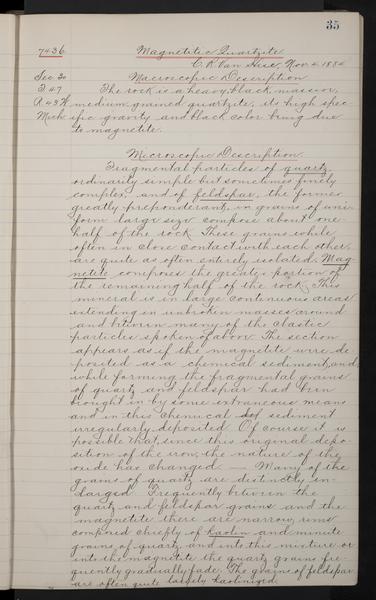 35
7436 Magnetitic Quartzite
C. R. Van Hise, Nov. 4. 1884
Sec 20 Macroscopic Description
T. 47 The rock is a heavy, black, massive,
R. 43 W medium grained quartzite, its high spec
Mich ific gravity and black color being due
to magnetite.
Microscopic Description
Fragmental particles of quartz,
ordinarily simple but sometimes finely
complex, and of feldspar, the former
greatly preponderant, in grains of uni-
form large size compose about one
half of the rock. These grains while
often in close contact with each other,
are quite as often entirely isolated. Mag-
netite composes the greater portion of
the remaining half of the rock. This
mineral is in large continuous areas
extending in unbroken masses around
and between many of the clastic
particles spoken of above. The section
appears as if the magnetite were de
posited as a chemical sediment, and
while forming the fragmental grains
of quartz and feldspar had been
brought in by some extraneous means
and in this chemical sediment
irregularly deposited. Of course it is
possible that, since this original depo-
sition of the iron, the nature of the
oxide has changed — Many of the
grains of quartz are distinctly en-
larged. Frequently between the
quartz and feldspar grains and the
magnetite there are narrow rims
composed chiefly of kaolin and minute
grains of quartz, and into this mixture or
into the magnetite the quartz grains fre-
quently gradually fade. The grains of feldspar
are often quite largely kaolinized.